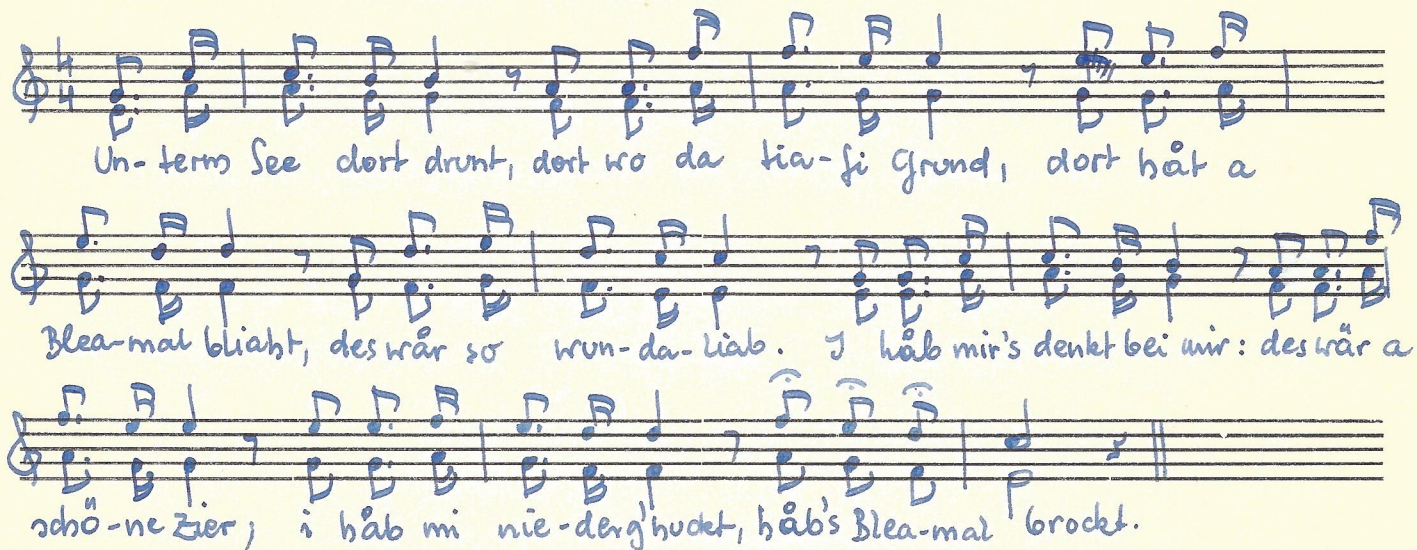 4/4
Un-term See dort drunt, dort wo da tia-fi Grund, dort håt a
Blea-mal bliaht, des wår so wun-da-liab. I håb mir's denkt bei mir: des wär a
schö-ne Zier; i håb mi nie-derg'huckt, håb's Blea-mal brockt.